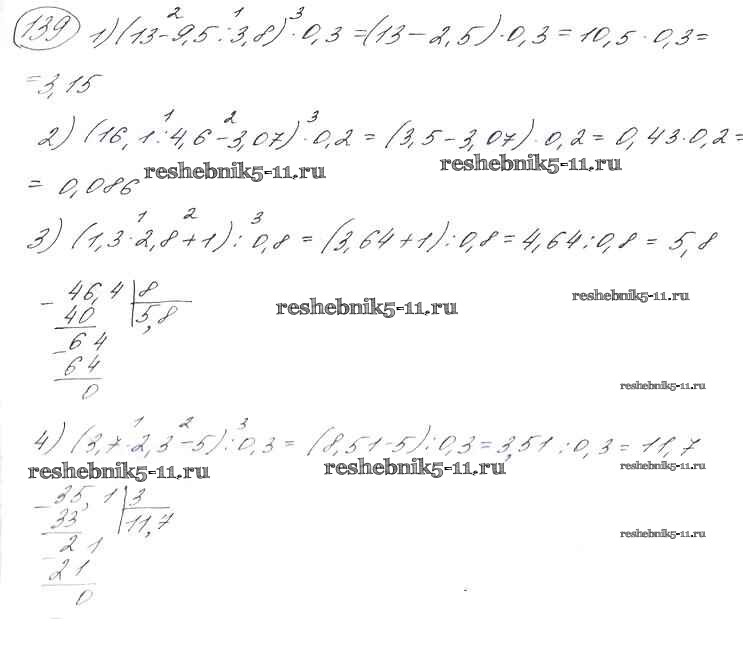 139 1) (13-9,5:3,8)·0,3=(13-2,5)·0,3=10,5·0,3=
2 1 3
=3,15
1 2 3
2) (16,1:4,6-3,07)·0,2=(3,5-3,07)·0,2=0,43·0,2=
reshebnik5-11.ru reshebnik5-11.ru
=0,086
1 2 3
3) (1,3·2,8+1):0,8=(3,64+1):0,8=4,64:0,8=5,8
- 46,4 | 8
40 | 5,8
reshebnik5-11.ru reshebnik5-11.ru
- 64
64
0
reshebnik5-11.ru
1 2 3
4) (3,7·2,3-5):0,3=(8,51-5):0,3=3,51:0,3=11,7
reshebnik5-11.ru reshebnik5-11.ru reshebnik5-11.ru
- 35,1 | 3
33 | 11,7
- 21
reshebnik5-11.ru
21
0